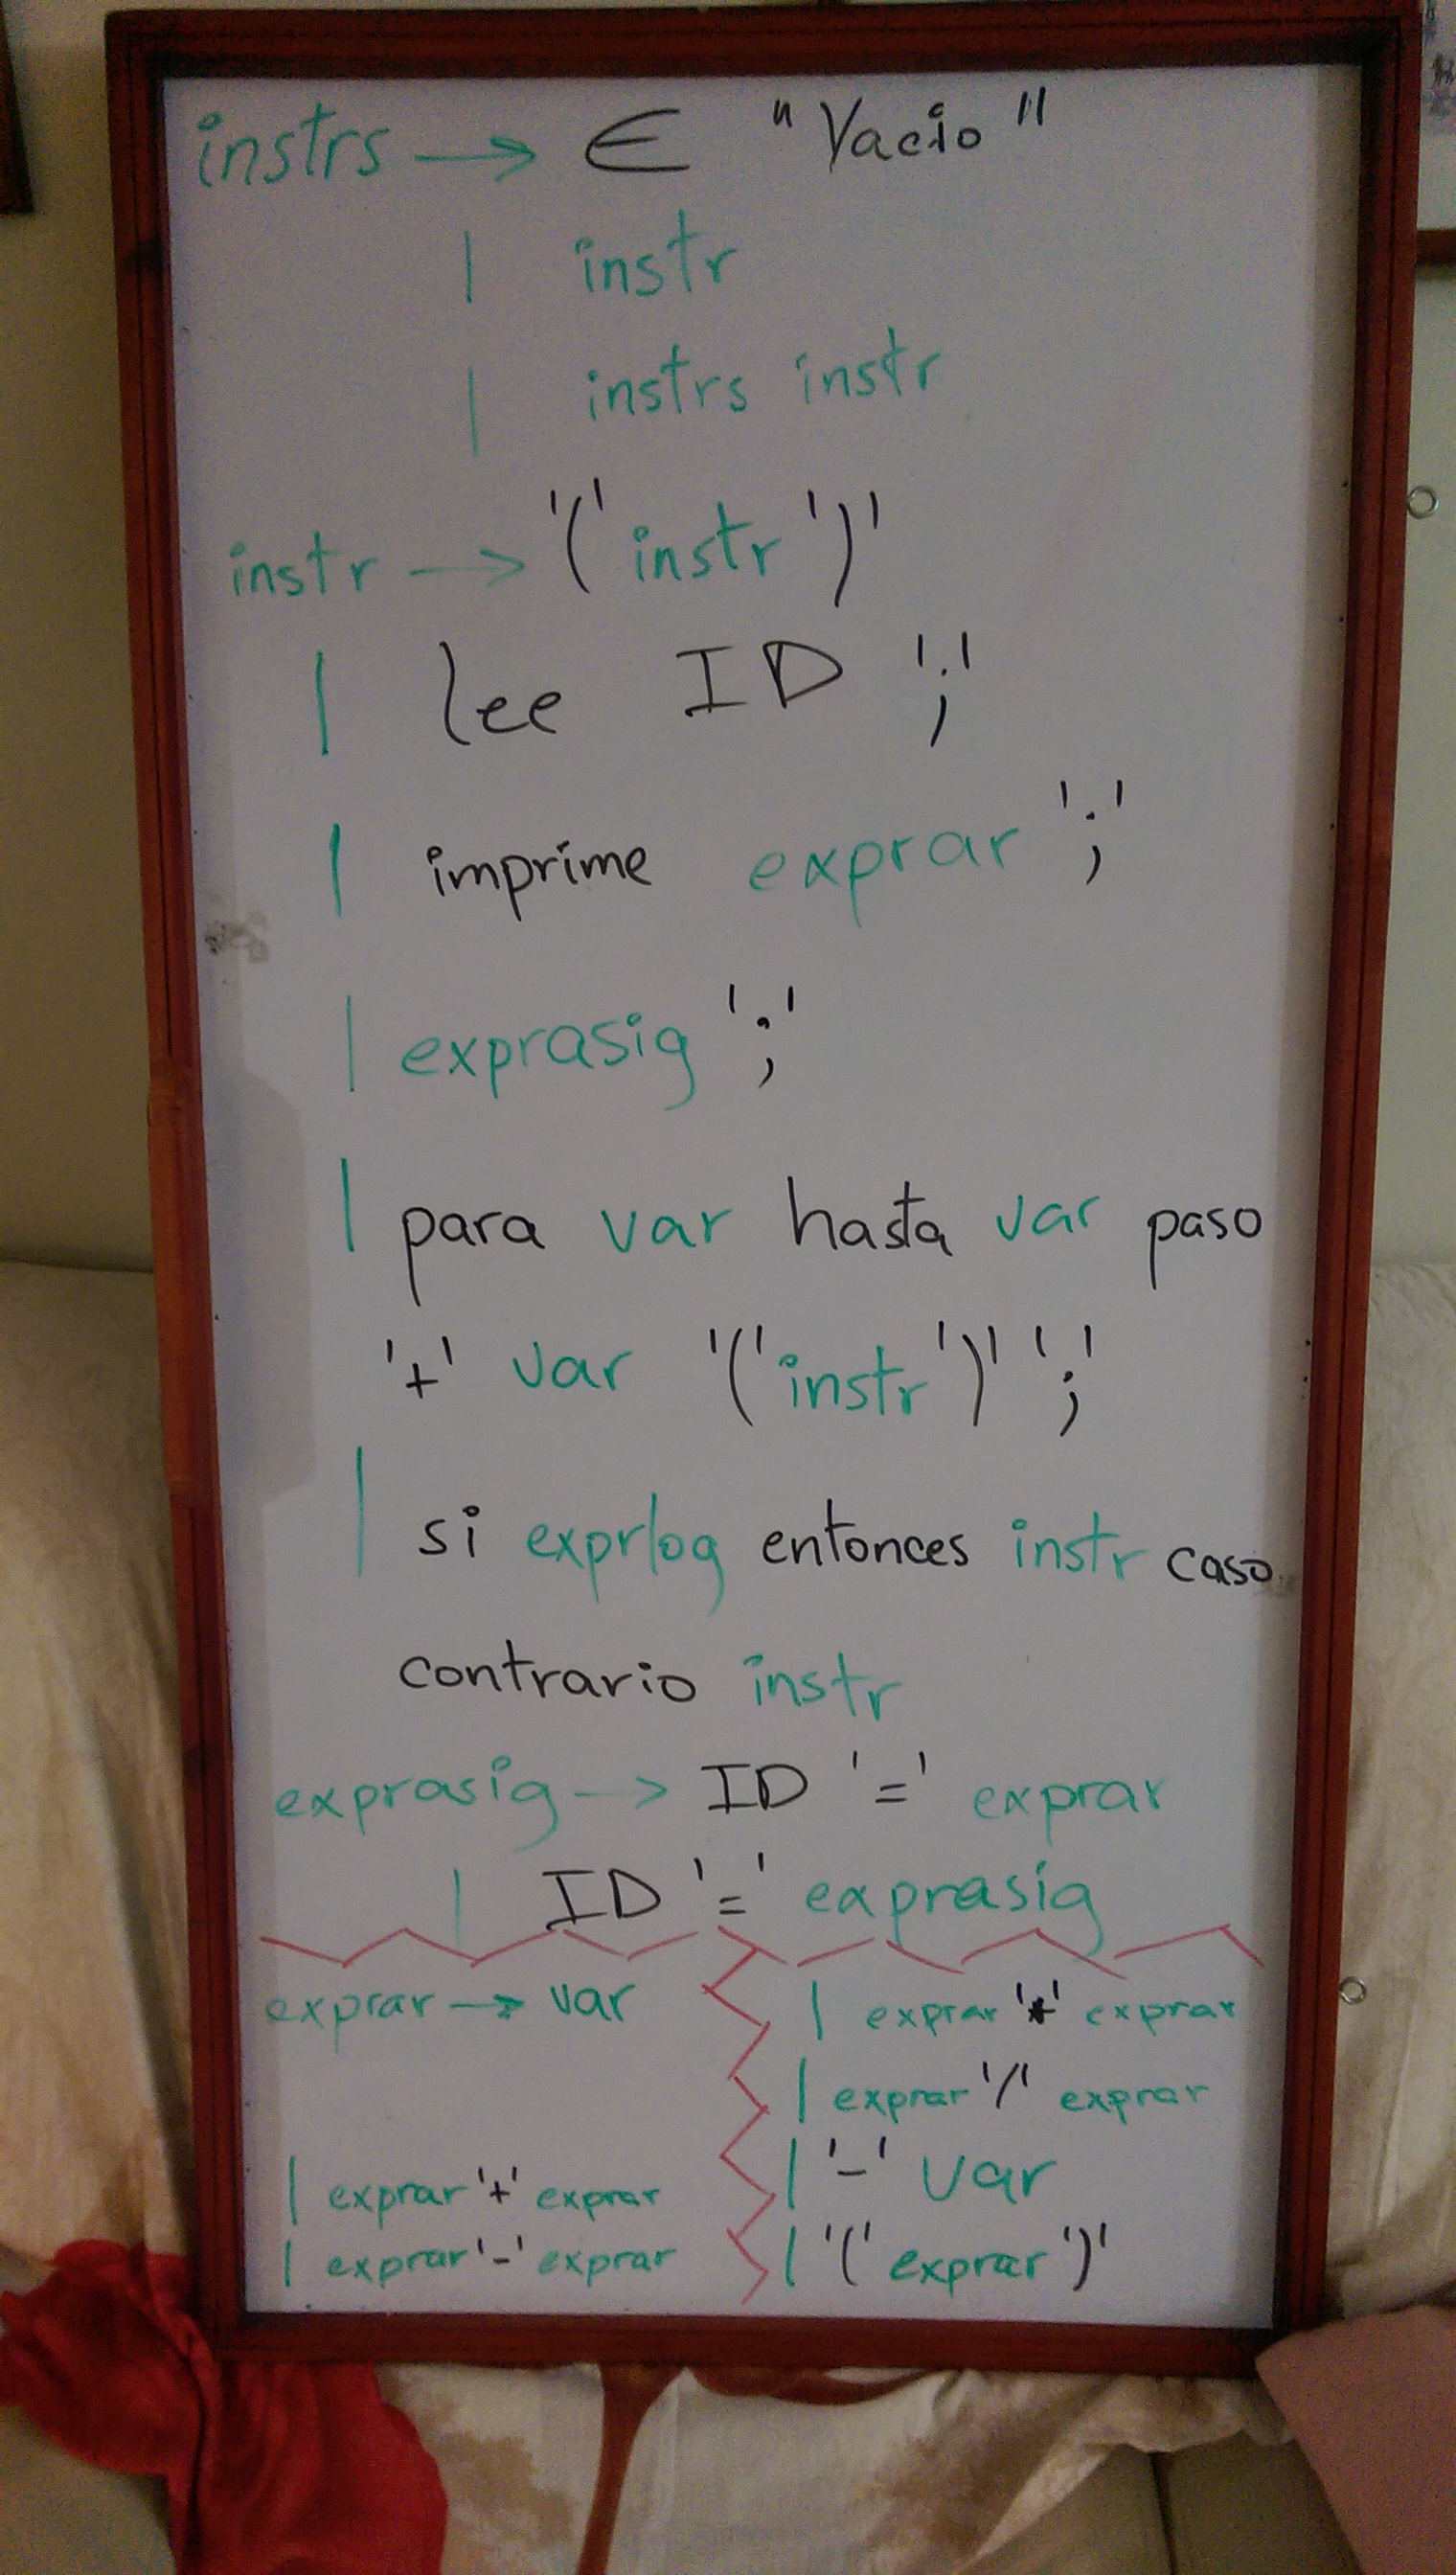 instrs → ∈ "Vacio"
| instr
| instrs instr
instr → '(' instr ')'
| lee ID ';'
| imprime exprar ';'
| exprasig ';'
| para var hasta var paso
'+' var '(' instr ')' ';'
| si exprlog entonces instr caso
contrario instr
exprasig → ID '=' exprar
| ID '=' exprasig
exprar → var
| exprar '+' exprar
| exprar '-' exprar
| exprar '*' exprar
| exprar '/' exprar
| '-' var
| '(' exprar ')'